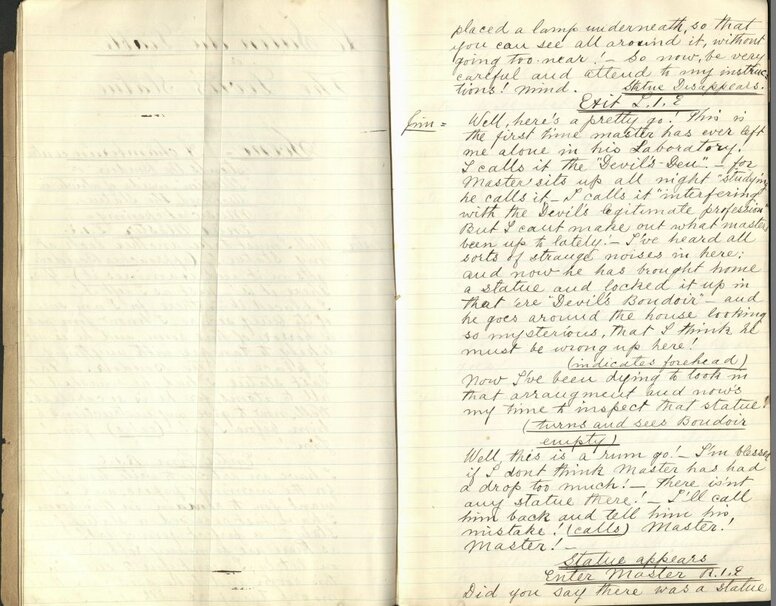 placed a lamp underneath, so that
you can see all around it, without
going too near! — So now, be very
careful and attend to my instruc-
tions! mind. Statue Disappears.
Exit L.1.E
Jim = Well, here's a pretty go! This is
the first time master has ever left
me alone in his Laboratory!
I calls it the "Devil's-Den" — for
Master sits up all night "studying"
he calls it — I calls it "interfering
with the Devil's legitimate profession"
But I can't make out what master's
been up to lately. — I've heard all
sorts of strange noises in here;
and now he has brought home
a statue and locked it up in
that 'ere "Devil's Boudoir" — and
he goes around the house looking
so mysterious, that I think he
must be wrong up here!
(indicates forehead)
Now I've been dying to look in
that arrangment and now's
my time to inspect that statue!
(turns and sees Boudoir
empty)
Well, this is a rum go! — I'm blessed
if I dont think Master has had
a drop too much! — there is'nt
any statue there! — I'll call
him back and tell him his
mistake! (calls) Master!
Master! —
Statue appears
Enter Master R.1.E
Did you say there was a statue